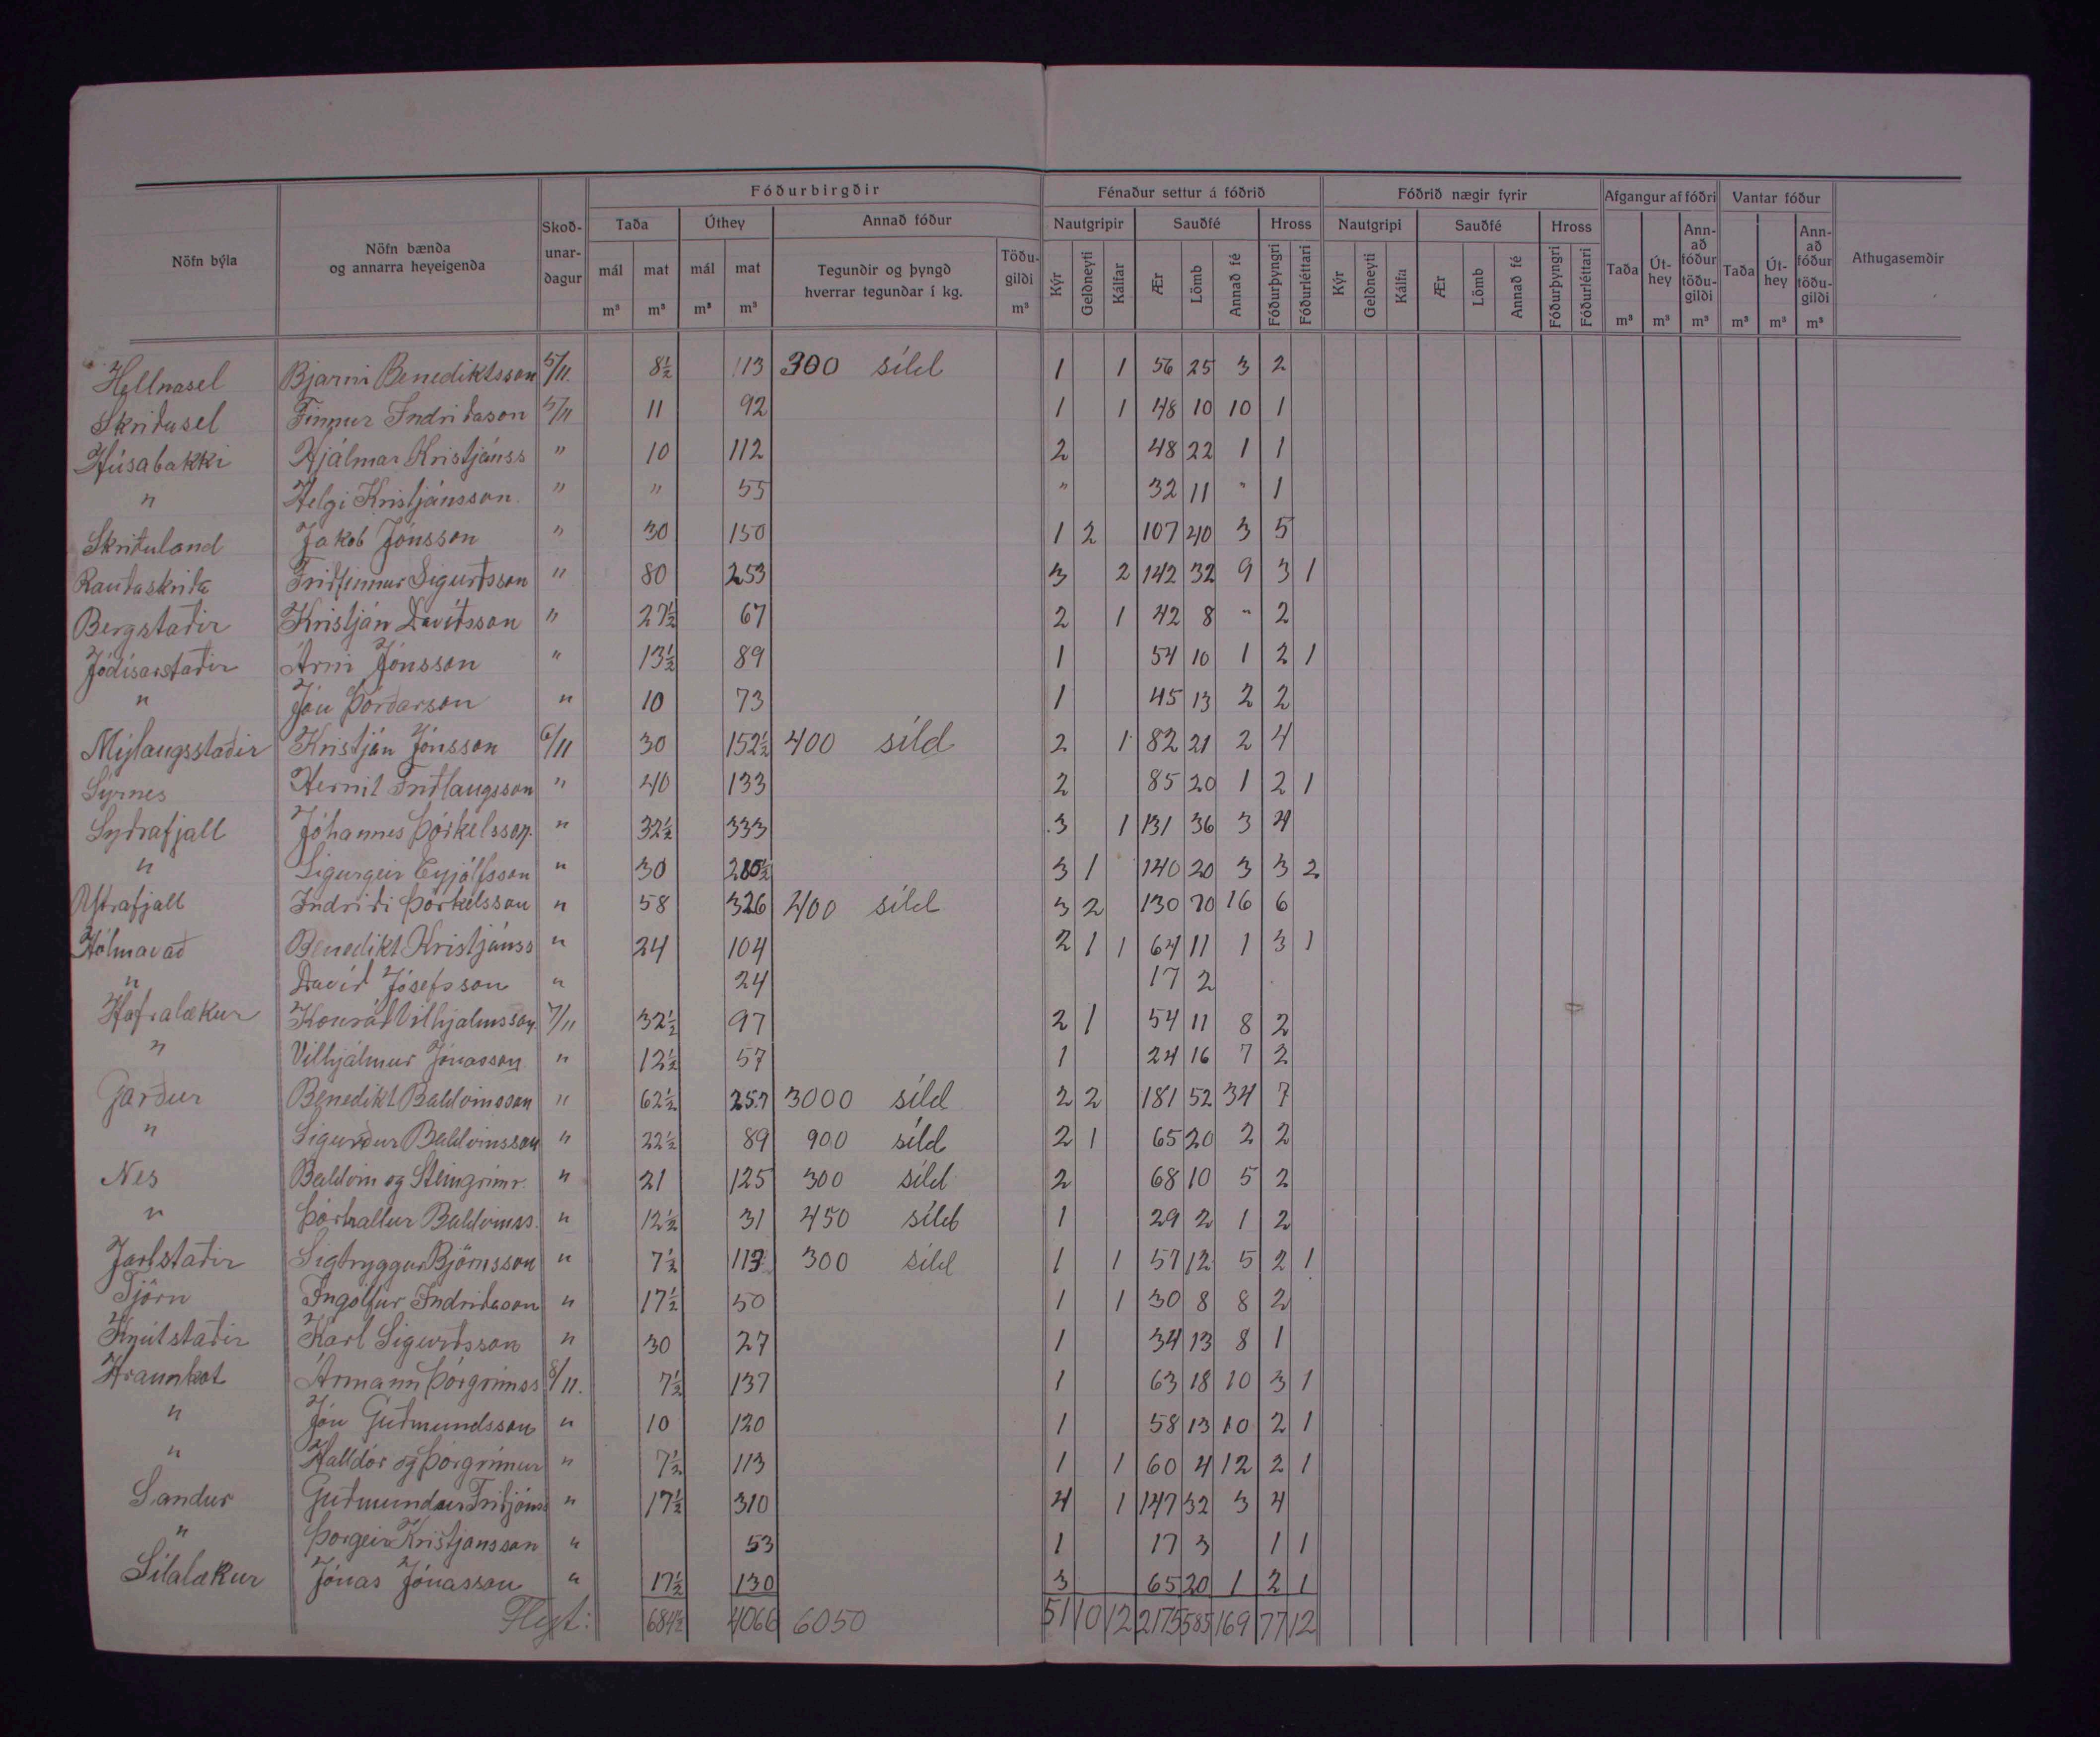 Fóðurbirgðir Fénaður settur á fóðrið Fóðrið nægir fyrir Afgangur af fóðri Vantar fóður
Nöfn býla Nöfn bænda og annarra heyeigenda Skoð-unar-dagur Taða Úthey Annað fóður Nautgripir Sauðfé Hross Nautgripi Sauðfé Hross Taða Út-hey Ann-að fóður töðu-gildi Taða Út-hey Ann-að fóður töðu-gildi Athugasemdir
mál mat mál mat Tegundir og þyngd hverrar tegundar í kg. Töðu-gildi Kýr Geldneyti Kálfar Ær Lömb Annað fé Fóðurþyngri Fóðurléttari Kýr Geldneyti Kálfa Ær Lömb Annað fé Fóðurþyngri Fóðurléttari
m³ m³ m³ m³ m³ m³ m³ m³ m³ m³ m³
Hellnasel Bjarni Benediktsson 5/11. 8½ 113 300 síld 1 1 56 25 3 2
Skriðusel Finnur Indriðason 5/11 11 92 1 1 48 10 10 1
Húsabakki Hjálmar Kristjánss " 10 112 2 48 22 1 1
" Helgi Kristjánsson. " " 55 " 32 11 " 1
Skriðuland Jakob Jónsson " 30 150 1 2 107 40 3 5
Rauðaskriða Friðfinnur Sigurðsson " 80 253 3 2 142 32 9 3 1
Bergstaðir Kristján Davíðsson " 27½ 67 2 1 42 8 " 2
Jódísarstaðir Árni Jónsson " 13½ 89 1 54 10 1 2 1
" Jón Þórðarson " 10 73 1 45 13 2 2
Mýlaugsstaðir Kristján Jónsson 6/11 30 152½ 400 síld 2 1 82 21 2 4
Sýrnes Hernit Friðlaugsson " 40 133 2 85 20 1 2 1
Syðrafjall Jóhannes Þórkelsson. " 32½ 333 3 1 131 36 3 4
" Sigurgeir Eyjólfsson " 30 285½ 3 1 140 20 3 3 2
Ytrafjall Indriði Þórkelsson " 58 326 400 síld 3 2 130 70 16 6
Hólmavað Benedikt Kristjánss " 24 104 2 1 1 64 11 1 3 1
" Davíð Jósefsson " 24 17 2
Hafralækur Konráð Vilhjálmsson 7/11 32½ 97 2 1 54 11 8 2
" Vilhjálmur Jónasson " 12½ 57 1 24 16 7 2
Garður Benedikt Baldvinsson " 62½ 257 3000 síld 2 2 181 52 34 7
" Sigurður Baldvinsson " 22½ 89 900 síld 2 1 65 20 2 2
Nes Baldvin og Steingrímr. " 21 125 300 síld 2 68 10 5 2
" Þórhallur Baldvinss. " 12½ 31 450 síld 1 29 2 1 2
Jarlstaðir Sigtryggur Björnsson " 7½ 113 300 síld 1 1 57 12 5 2 1
Tjörn Ingólfur Indriðason " 17½ 50 1 1 30 8 8 2
Knútstaðir Karl Sigurðsson " 30 27 1 34 13 8 1
Hraunkot Ármann Þórgrímss 8/11. 7½ 137 1 63 18 10 3 1
" Jón Guðmundsson " 10 120 1 58 13 10 2 1
" Halldór og Þorgrímur " 7½ 113 1 1 60 4 12 2 1
Sandur Guðmundur Friðjónss " 17½ 310 4 1 147 32 3 4
" Þorgeir Kristjánsson " 53 1 17 3 1 1
Sílalækur Jónas Jónasson " 17½ 130 3 65 20 1 2 1
Flyt: 684½ 4066 6050 51 10 12 2175 585 169 77 12